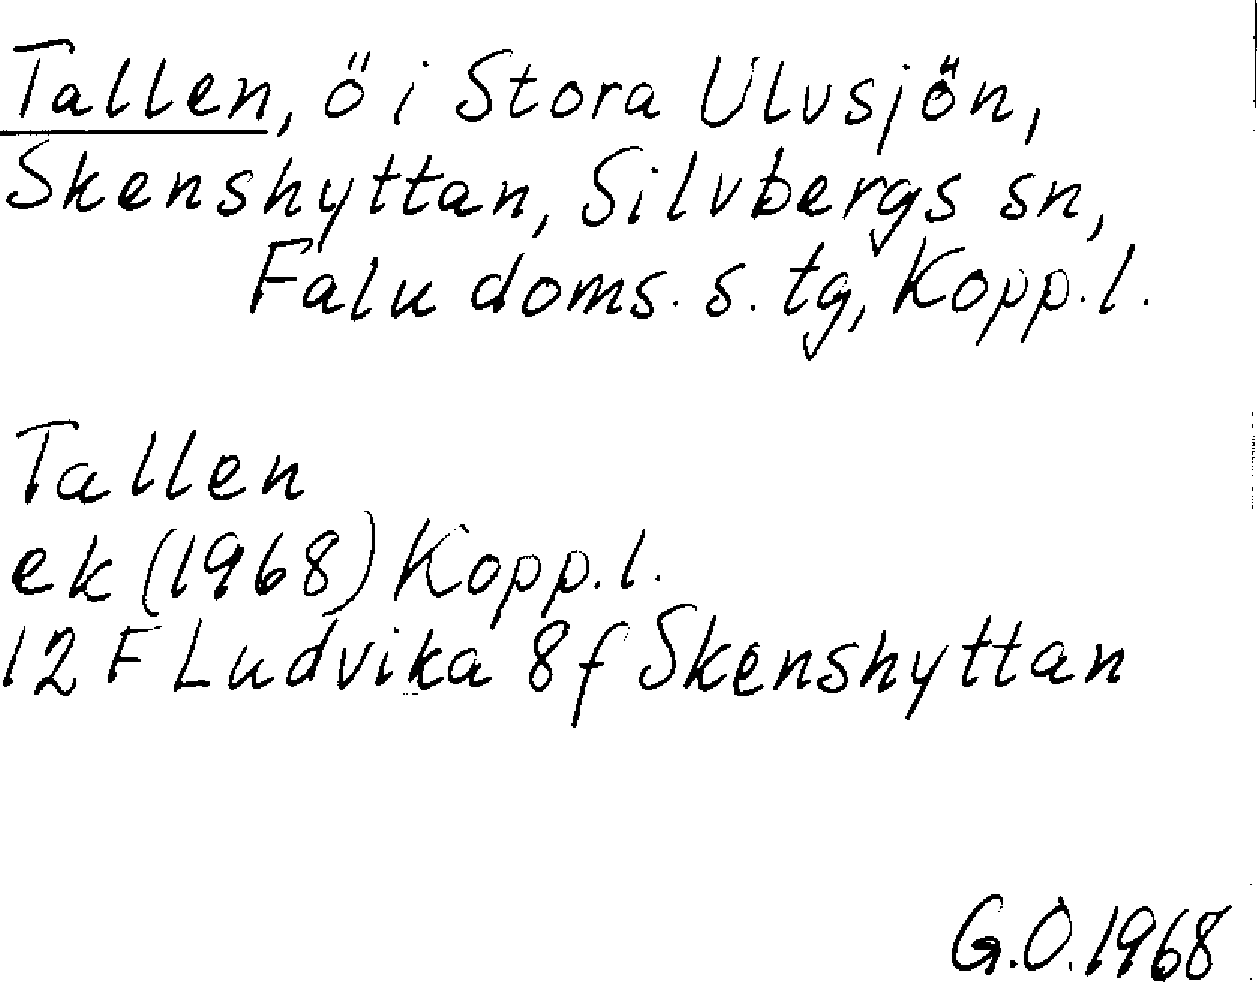 Tallen, ö i Stora Ulvsjön,
Skenshyttan, Silvbergs sn,
Falu doms. s. tg, Kopp. l.
Tallen
ek (1968) Kopp. l.
12 F Ludvika 8f Skenshyttan
G.O. 1968